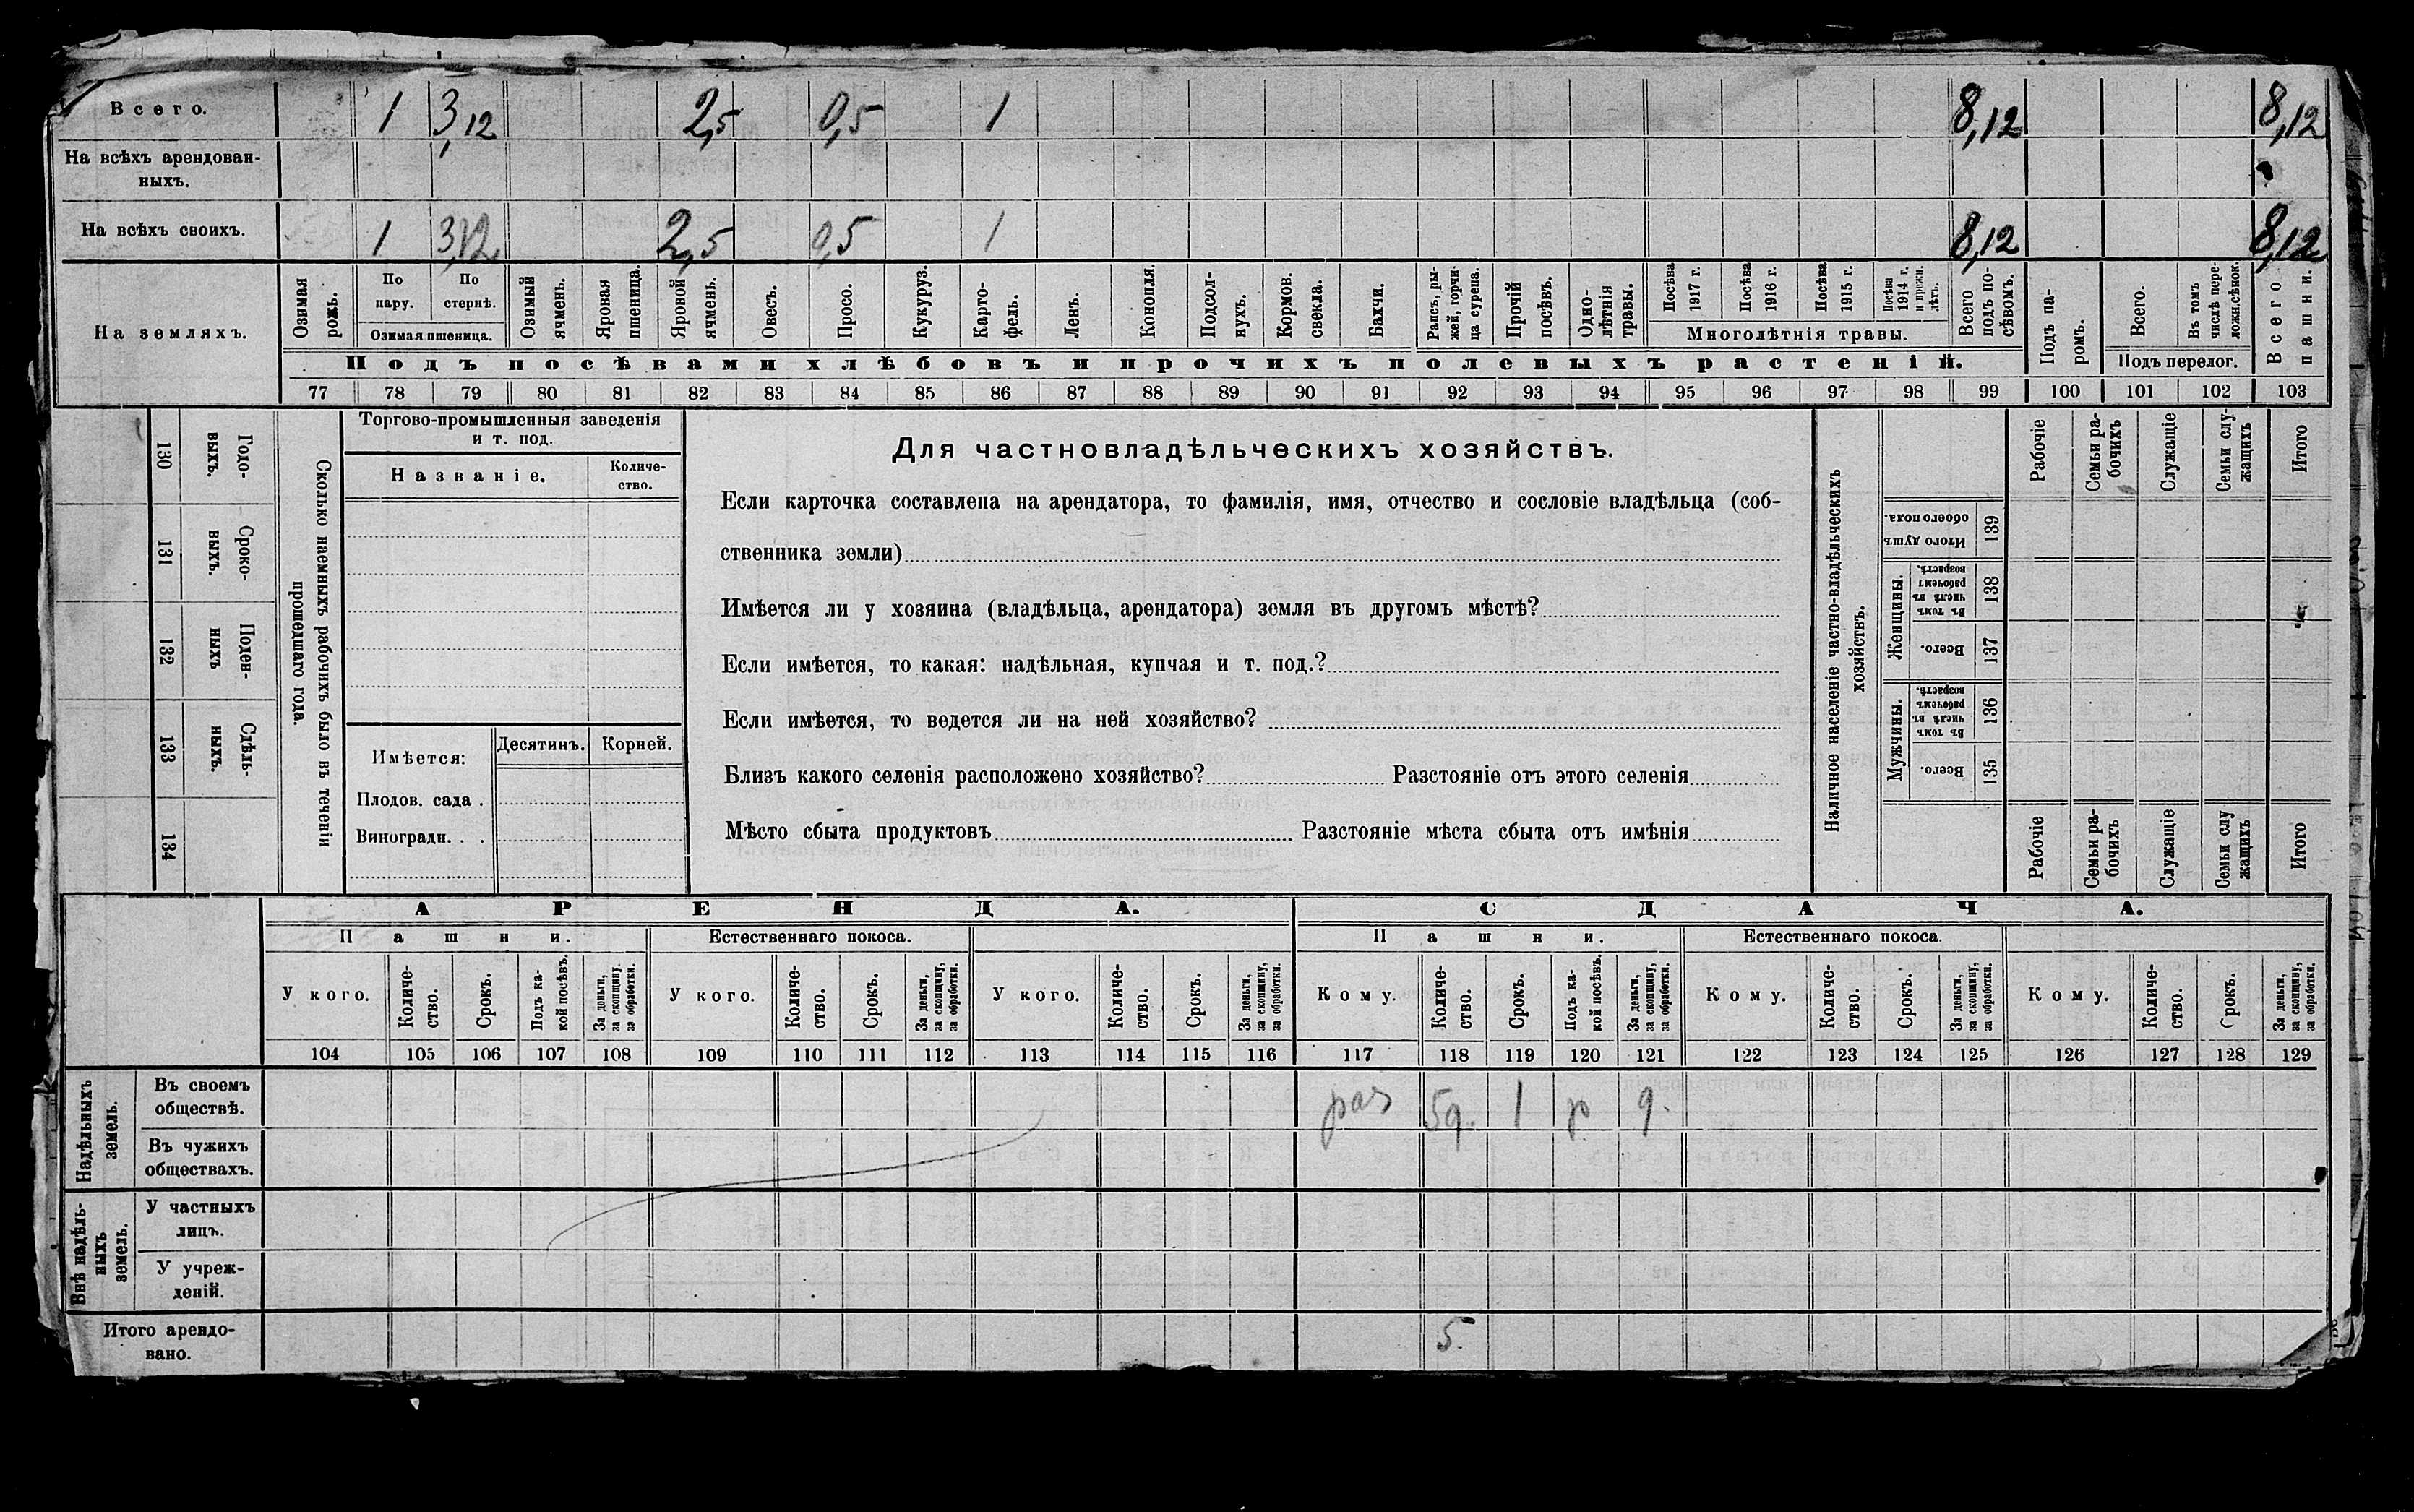 Всего. 1 3,12 2,5 0,5 1 8,12 8,12
На всѣхъ арендован-
ныхъ.
На всѣхъ своихъ. 1 3,12 2,5 0,5 1 8,12 8,12
На земляхъ.
Озимая рожь.
По пару.
По стернѣ.
Озимая пшеница.
Озимый ячмень.
Яровая пшеница.
Яровой ячмень.
Овесъ.
Просо.
Кукуруз.
Карто-
фель.
Ленъ.
Конопля.
Подсол-
нухъ.
Кормов.
свекла.
Бахчи.
Рапсъ, ры-
жей, горчи-
ца сурепа.
Прочій
посѣвъ.
Одно-
лѣтнія
травы.
Посѣва
1917 г.
Посѣва
1916 г.
Посѣва
1915 г.
Посѣва
1914 г.
и прежн.
лѣтъ.
Многолѣтнія травы.
Всего
подъ по-
сѣвомъ.
Подъ па-
ромъ.
Всего.
Въ томъ
числѣ пере-
ложн.сѣнок.
Подъ перелог.
Всего
пашни.
Подъ посѣвами хлѣбовъ и прочихъ полевыхъ растеній.
77 78 79 80 81 82 83 84 85 86 87 88 89 90 91 92 93 94 95 96 97 98 99 100 101 102 103
130 Годо-
выхъ.
131 Сроко-
выхъ.
132 Поден-
ныхъ
133 Сдѣль-
ныхъ.
134
Сколько наемныхъ рабочихъ было въ теченіи
прошедшаго года.
Торгово-промышленныя заведенія
и т. под.
Названіе.
Количе-
ство.
Имѣется: Десятинъ. Корней.
Плодов. сада .
Виноградн. . .
Для частновладѣльческихъ хозяйствъ.
Если карточка составлена на арендатора, то фамилія, имя, отчество и сословіе владѣльца (соб-
ственника земли)
Имѣется ли у хозяина (владѣльца, арендатора) земля въ другомъ мѣстѣ?
Если имѣется, то какая: надѣльная, купчая и т. под.?
Если имѣется, то ведется ли на ней хозяйство?
Близъ какого селенія расположено хозяйство? Разстояніе отъ этого селенія
Мѣсто сбыта продуктовъ Разстояніе мѣста сбыта отъ имѣнія
Наличное населеніе частно-владѣльческихъ
хозяйствъ.
Рабочіе
Семьи ра-
бочихъ
Служащіе
Семьи слу-
жащихъ
Итого
Итого душъ
обоего пола.
139
Женщины.
Въ томъ
числѣ въ
рабочемъ
возрастѣ.
138
Всего.
137
Мужчины.
Въ томъ
числѣ въ
рабочемъ
возрастѣ.
136
Всего.
135
Рабочіе
Семьи ра-
бочихъ
Служащіе
Семьи слу
жащихъ
Итого
АРЕНДА. СДАЧА.
Пашни. Естественнаго покоса. Пашни. Естественнаго покоса.
У кого.
Количе-
ство.
Срокъ.
Подъ ка-
кой посѣвъ.
За деньги,
за скопщину.
за обработки.
У кого.
Количе-
ство.
Срокъ.
За деньги,
за скопщину,
за обработки.
У кого.
Количе-
ство.
Срокъ.
За деньги,
за скопщину,
за обработки.
Кому.
Количе-
ство.
Срокъ.
Подъ ка-
кой посѣвъ.
За деньги,
за скопщину,
за обработки.
Кому.
Количе-
ство.
Срокъ.
За деньги,
за скопщину,
за обработки.
Кому.
Количе-
ство.
Срокъ.
За деньги,
за скопщину,
за обработки.
104 105 106 107 108 109 110 111 112 113 114 115 116 117 118 119 120 121 122 123 124 125 126 127 128 129
Надѣльныхъ
земель.
Въ своемъ
обществѣ. раз 5д. 1 р д.
Въ чужихъ
обществахъ.
Внѣ надѣль-
ныхъ
земель.
У частныхъ
лицъ.
У учреж-
деній.
Итого арендо-
вано. 5